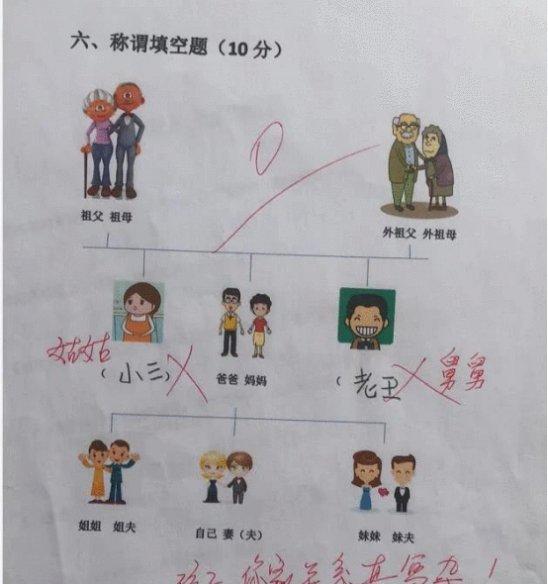 六、称谓填空题（10 分）
0
祖父 祖母
外祖父 外祖母
姑姑
（小三）
爸爸 妈妈
（老王
舅舅
姐姐 姐夫
自己 妻（夫）
妹妹 妹夫
孩子 你家关系真复杂！